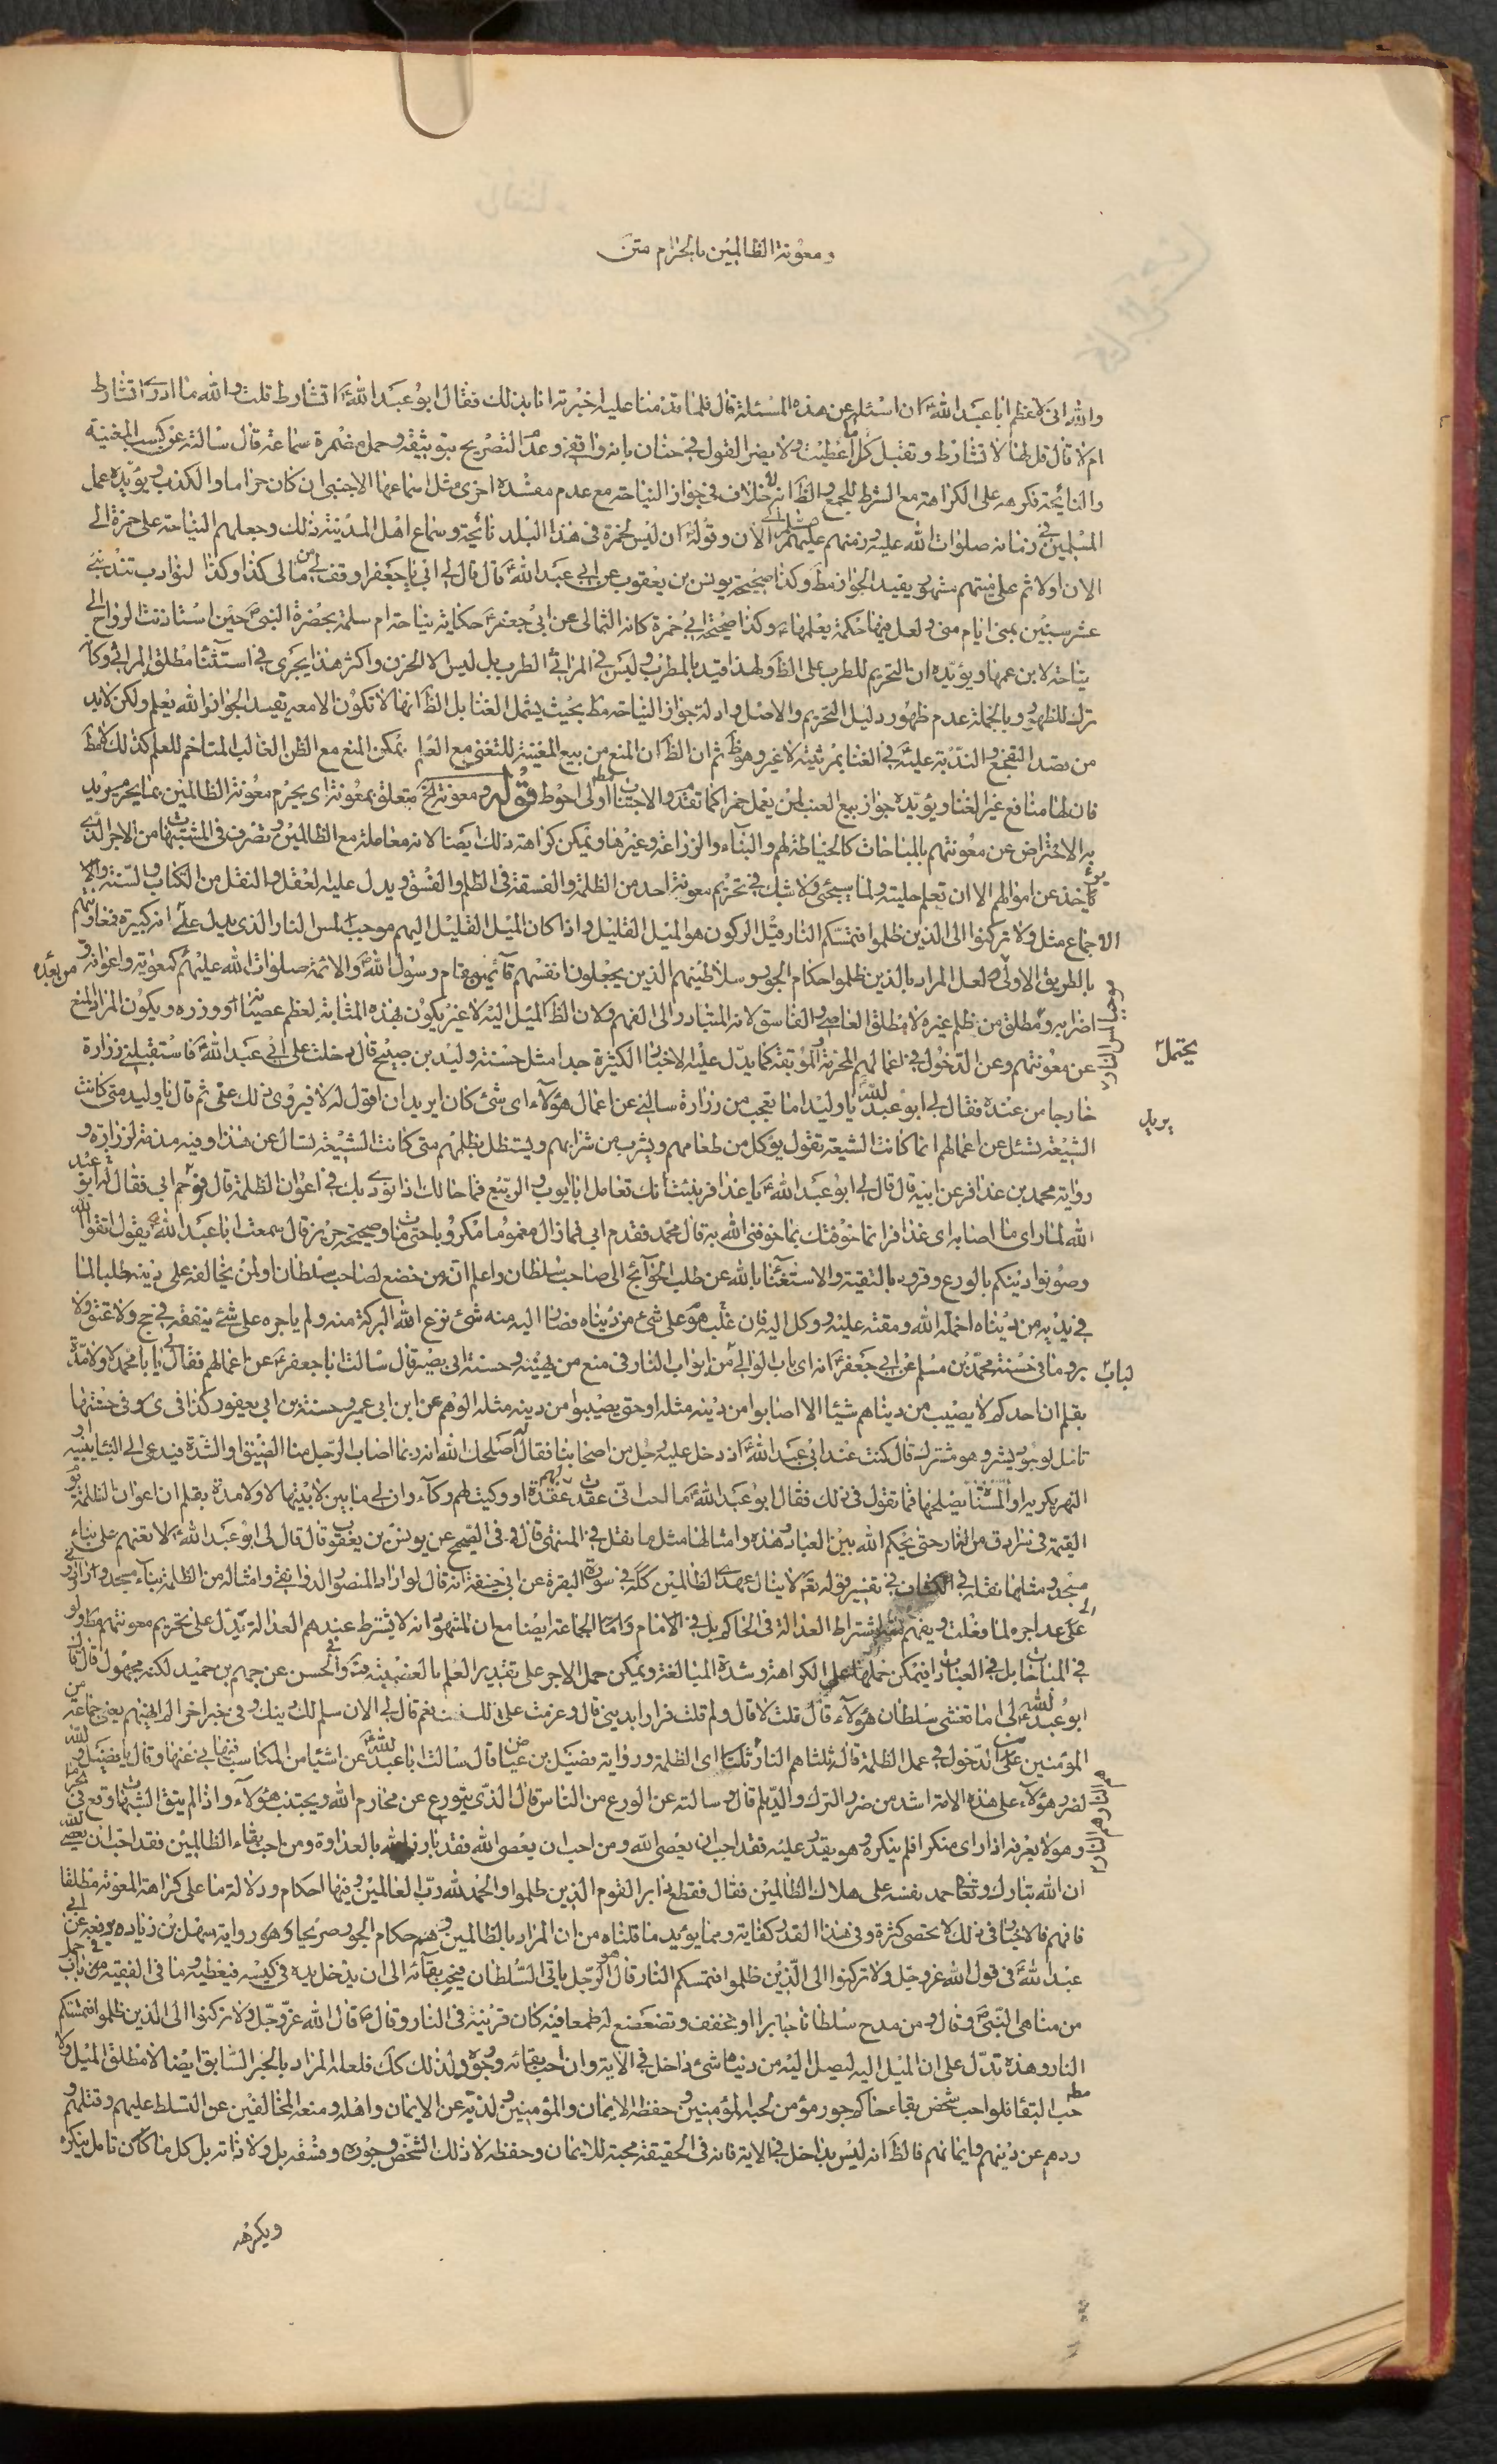 ومعونة الظالمين بالحرام متن
والله انى لاعظم ابا عبد الله ع ان اسئله عن هذه المسئلة قال فلما قدمنا عليه اخبرته انا بذلك فقال ابو عبد الله ع اتشارط قلت والله ما ادرى اتشارط
ام لا قال قل لها لا تشارط وتقبل كل ما اعطيت ولا يضر القول فى حنان بانه واقفى وعدم التصريح بتوثيقه وحمله مضمرة سماعة قال سالته عن كسب المغنية
والنائحة فكرهه على الكراهة مع الشرط للجمع والظ انه لا خلاف فى جواز النياحة مع عدم مفسدة اخرى مثل اسماعها الاجنبى ان كان حراما والكذب ويؤيده عمل
المسلمين فى زمانه صلوات الله عليه وزمنهم عليهم السلام الى الان وقوله ان ليس لحمزة فى هذا البلد نائحة وسماع اهل المدينة ذلك وجعلهم النياحة على حمزة الى
الان اولا ثم على ميتهم مشهور يفيد الجواز مط وكذا صحيحة يونس بن يعقوب عن ابى عبد الله ع قال قال لى ابى يا جعفر اوقف لى من مالى كذا وكذا لنوادب تندبنى
عشر سنين بمنى ايام منى ولعل فيها حكمة يعلمها ع وكذا صحيحة ابى حمزة كانه الثمالى عن ابى جعفر ع حكاية نياحة ام سلمة بحضرة النبى ص حين استاذنت الرواح الى
نياحة لابن عمها ويؤيده ان التحريم للطرب على الظ ولهذا قيد بالمطرب وليس فى المراثى الطرب بل ليس الا الحزن واكثر هذا يجرى فى استثنا مطلق المراثى وكانه
ترك للظهور وبالجملة عدم ظهور دليل التحريم والاصل وادلة جواز النياحة مط بحيث يشمل الغنا بل الظ انها لا تكون الا معه يفيد الجواز والله يعلم ولكن لا بد
من قصد التفجع والندبة عليه فى الغنا بمرثيته لا غير وهو ظ ثم ان الظ ان المنع من بيع المغنية للتغنى مع العلم يمكن المنع مع الظن الغالب المتاخم للعلم كذلك لا مط
فان لها منافع غير الغنا ويؤيده جواز بيع العنب لمن يعمل خمرا كما تقدم والاجتناب مط اولى احوط قوله ومعونة الخ متعلق بمعونة اى يحرم معونة الظالمين بما يحرم يريد
به الاحتراض عن معونتهم بالمباحات كالخياطة لهم والبناء والزراعة وغيرها ويمكن كراهة ذلك ايضا لانه معاملة مع الظالمين وتصرف فى المشتبهات من الاجر الذى
ياخذ عن اموالهم الا ان تعلم حليته ولما سيجئ ولا شك فى تحريم معونة احد من الظلمة والفسقة فى الظلم والفسق ويدل عليه العقل والنقل من الكتاب والسنة والا
الاجماع مثل ولا تركنوا الى الذين ظلموا فتمسكم النار قيل الركون هو الميل القليل واذا كان الميل القليل اليهم موجبا لمس النار الذى يدل على انه كبيرة فمعاونتهم
بالطريق الاولى ولعل المراد بالذين ظلموا حكام الجور وسلاطينهم الذين يجعلون انفسهم قائمين مقام رسول الله ص والائمة صلوات الله عليهم كمعوية واعوانه ومن بعده
اضرابه ومطلق من ظلم غيره لا مطلق العاصى والفاسق لانه المتبادر الى الفهم ولان الظ الميل اليه لا غير يكون بهذه المثابة لعظم عصيانه او وزره ويكون المراد المنع
عن معونتهم وعن الدخول فى اعمالهم المحرمة الموبقة كما يدل عليه الاخبار الكثيرة جدا مثل حسنة وليد بن صبيح قال دخلت على ابى عبد الله ع فاستقبلنى زرارة
يحتمل
خارجا من عنده فقال لى ابو عبد الله ع يا وليد اما تعجب من زرارة سالنى عن اعمال هؤلاء اى شئ كان يريد ان اقول له لا فيروى ذلك عنى ثم قال يا وليد متى كانت
يريد
الشيعة تسئل عن اعمالهم انما كانت الشيعة تقول يؤكل من طعامهم ويشرب من شرابهم ويستظل بظلهم متى كانت الشيعة تسال عن هذا وفيه مذمة لزرارة و
رواية محمد بن عذافر عن ابيه قال قال لى ابو عبد الله ع يا عذافر نبئت انك تعامل ابا ايوب والربيع فما حالك اذا نودى بك فى اعوان الظلمة قال فوجم ابى فقال له ابو عبد
الله لما راى ما اصابه اى عذافر انما خوفتك بما خوفنى الله به قال محمد فقدم ابى فما زال مغموما مكروبا حتى مات وصحيحة حريز قال سمعت ابا عبد الله ع يقول اتقوا الله
وصونوا دينكم بالورع وقووه بالتقية والاستغناء بالله عن طلب الحوائج الى صاحب سلطان واعلم انه من خضع لصاحب سلطان او لمن يخالفه على دينه طلبا لما
فى يديه من دنياه اخمله الله ومقته عليه ووكل اليه فان غلب هو على شئ من دنياه فصار اليه منه شئ نزع الله البركة منه ولم ياجره على شئ ينفقه فى حج ولا عتق ولا
بر وما فى حسنة محمد بن مسلم عن ابى جعفر ع انه اى باب الوالى من ابواب النار فى منع من يهينه وحسنة ابى بصير قال سالت ابا جعفر ع عن اعمالهم فقال لى يا با محمد لا ولا مدة
لباب
بقلم ان احدكم لا يصيب من دنياهم شيئا الا اصابوا من دينه مثله او حتى يصيبوا من دينه مثله الوهم عن ابن ابى عمير وحسنة بن ابى يعفور كذا فى ى وفى حسنتها
تامل لوجود بشير وهو مشترك قال كنت عند ابى عبد الله ع اذ دخل عليه رجل من اصحابنا فقال له اصلحك الله انه ربما اصاب الرجل منا الضيق او الشدة فيدعى الى البناء يبنيه
النهر يكريه او المسناة يصلحها فما تقول فى ذلك فقال ابو عبد الله ع ما احب انى عقدت لهم عقدة او وكيت لهم وكاء وان لى ما بين لابتيها لا ولا مدة بقلم ان اعوان الظلمة يوم
القيمة فى سرادق من النار حتى يحكم الله بين العباد وهذه وامثالها مثل ما نقل فى المنتهى قال وفى الصحيح عن يونس بن يعقوب قال قال لى ابو عبد الله ع لا تعنهم على بناء
مسجد ومثلها نقله فى الكشاف فى تفسير قوله تعم لا ينال عهدى الظالمين فى سورة البقرة عن ابى حنيفة انه قال لو اراد المنصور الدوانيقى وامثاله من الظلمة بناء مسجد وارادنى
على عد اجره لما فعلت ويفهم منه اشتراط العدالة فى الحاكم بل فى الامام وامام الجماعة ايضا مع ان المشهور انه لا يشترط عندهم العدالة يدل على تحريم معونتهم مط ولو
فى المباحات بل فى العبادات فيمكن حملها على الكراهة وشدة المبالغة ويمكن حمل الاجر على تقدير العلم بالغصبية وفى الحسن عن جهم بن حميد لكنه مجهول قال قال
ابو عبد الله ع لى اما تغشى سلطان هؤلاء قال قلت لا قال ولم قلت فرارا بدينى قال وعزمت على ذلك قلت نعم قال لى الان سلم لك دينك وفى خبر اخر
المؤمنين على الدخول فى عمل الظلمة قال هم النار هم النار اى الظلمة ورواية فضيل بن عياض قال سالت ابا عبد الله ع عن اشياء من المكاسب فنهانى عنها وقال يا فضيل والله
لضرر هؤلاء على هذه الامة اشد من ضرر الترك والديلم قال وسالته عن الورع من الناس قال الذى يتورع عن محارم الله ويجتنب هؤلاء واذا لم يتق الشبهات وقع فى الحرام
وهو لا يعرفه اذا راى منكرا فلم ينكره وهو يقدر عليه فقد احب ان يعصى الله ومن احب ان يعصى الله فقد بارز الله بالعداوة ومن احب بقاء الظالمين فقد احب ان يعصى الله
ان الله تبارك وتعالى حمد نفسه على هلاك الظالمين فقال فقطع دابر القوم الذين ظلموا والحمد لله رب العالمين وفيها احكام ودلالة ما على كراهة المعونة مطلقا
فافهم فالاخبار فى ذلك لا تحصى كثرة وفى هذا القدر كفاية ومما يؤيد ما قلناه من ان المراد بالظالمين هم حكام الجور صريحا وهو رواية سهل بن زياد رفعه عن ابى
عبد الله ع فى قول الله عز وجل ولا تركنوا الى الذين ظلموا فتمسكم النار قال هو الرجل ياتى السلطان فيحب بقائه الى ان يدخل يده فى كيسه فيعطيه وما فى الفقيه فى باب جمل
من مناهى النبى ص وقال من مدح سلطانا جابرا او تخفف وتضعضع له طمعا فيه كان قرينه فى النار وقال ص قال الله عز وجل ولا تركنوا الى الذين ظلموا فتمسكم
النار وهذه تدل على ان الميل اليه ليصل اليه من دنيا شئ داخل فى الاية وان احب بقائه ووجوده ولذلك كك فلعله المراد بالخبر السابق ايضا لا مطلق الميل ولا
حب البقا فلو احب شخص بقاء حاكم جور مؤمن لحبه المؤمنين وحفظه الايمان والمؤمنين ولذبه عن الايمان واهله ومنعه المخالفين عن التسلط عليهم وقتلهم و
ردهم عن دينهم وايمانهم فالظ انه ليس بداخل فى الاية فانه فى الحقيقة محبة للايمان وحفظه لا ذلك الشخص وجوره وفسقه بل ولا ذاته بل كل ما كان تامل ينكره
ويكرهه